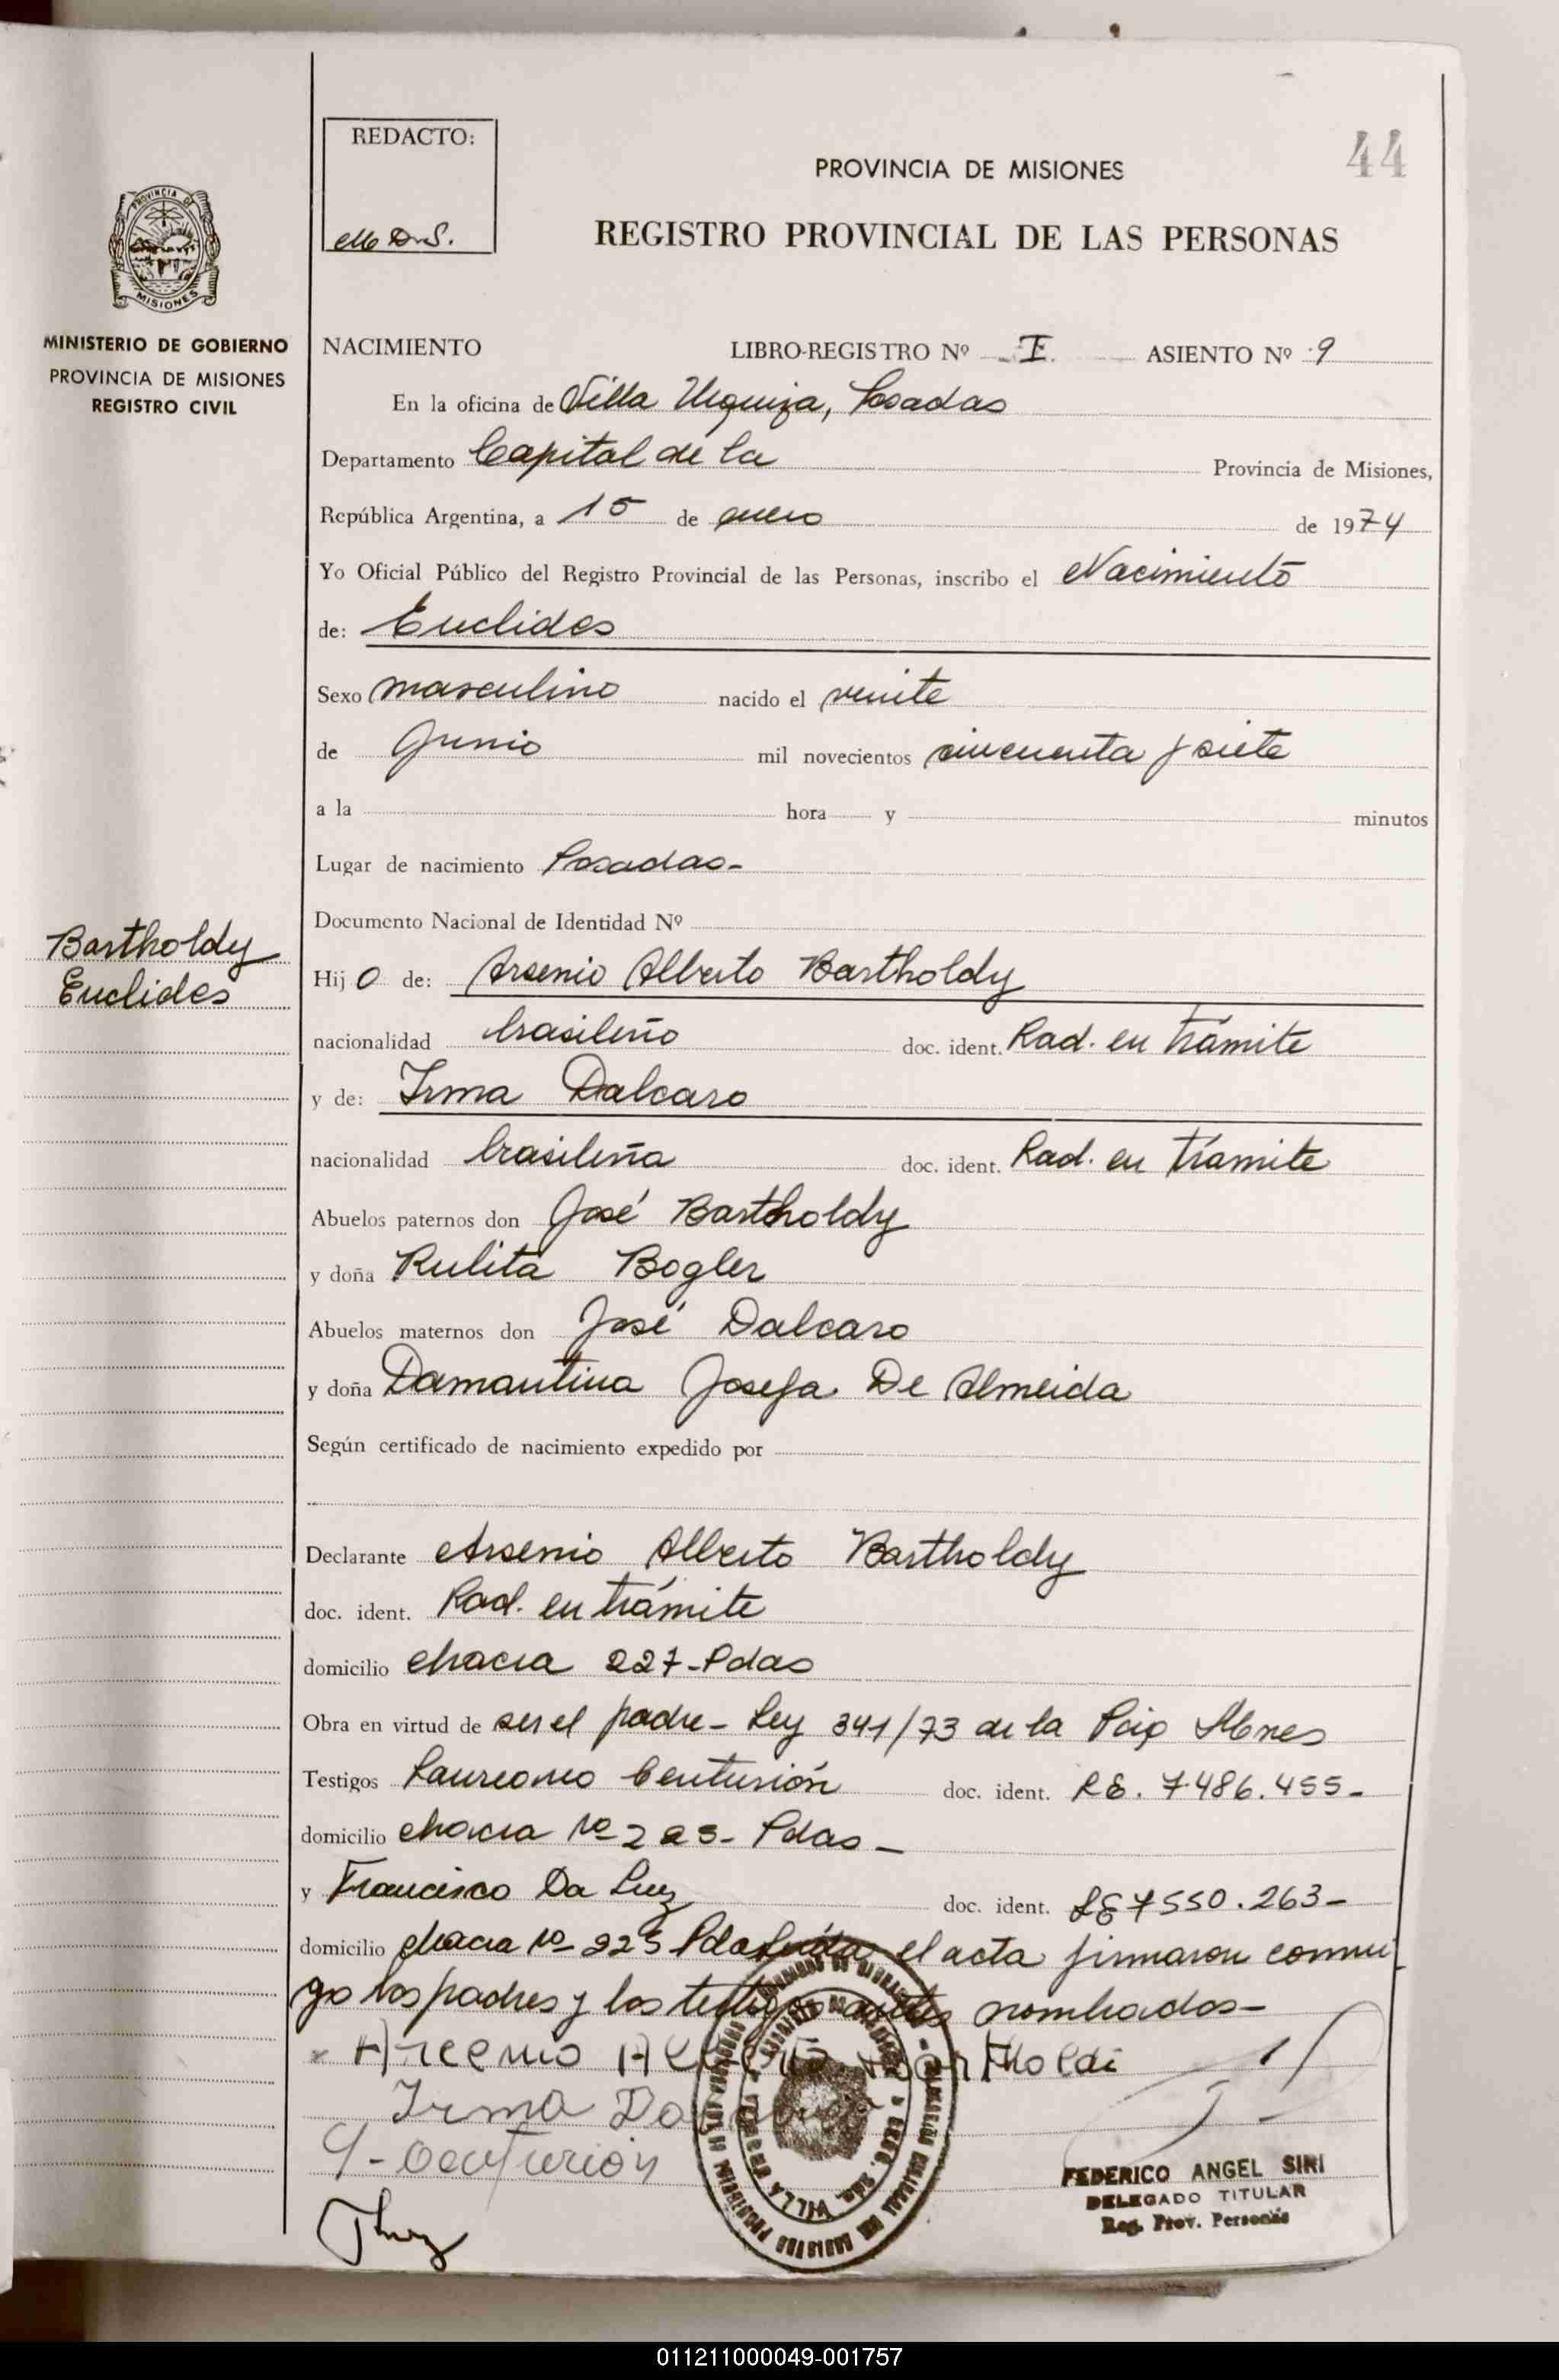 44
REDACTO:
PROVINCIA DE MISIONES
REGISTRO PROVINCIAL DE LAS PERSONAS
PROVINCIA DE
MISIONES
MINISTERIO DE GOBIERNO
PROVINCIA DE MISIONES
REGISTRO CIVIL
NACIMIENTO LIBRO-REGISTRO Nº I. ASIENTO Nº 9
En la oficina de Villa Urquiza, Posadas
Departamento Capital de la Provincia de Misiones,
República Argentina, a 15 de enero de 1974
Yo Oficial Público del Registro Provincial de las Personas, inscribo el Nacimiento
de: Euclides
Sexo masculino nacido el veinte
de Junio mil novecientos cincuenta y siete
a la hora y minutos
Lugar de nacimiento Posadas-
Documento Nacional de Identidad Nº
Bartholdy
Euclides
Hijo de: Arsenio Alberto Bartholdy
nacionalidad brasileño doc. ident. Rad. en trámite
y de: Irma Dalcaro
nacionalidad brasileña doc. ident. Rad. en trámite
Abuelos paternos don José Bartholdy
y doña Rulita Bogler
Abuelos maternos don José Dalcaro
y doña Damantina Josefa De Almeida
Según certificado de nacimiento expedido por
Declarante Arsenio Alberto Bartholdy
doc. ident. Rad. en trámite
domicilio chacra 227-Pdas
Obra en virtud de ser el padre- Ley 341/73 de la Mnes
Testigos Laureano Centurión doc. ident. 7486.455-
domicilio chacra Nº - Pdas-
y Francisco Da Luz doc. ident. LE 7550.263-
domicilio chacra Nº 225 Pdas Leída el acta firmaron conmi
go los padres y los testigos antes nombrados-
Arcenio Bartholdi
Irma
Centurión
FEDERICO ANGEL SIRI
DELEGADO TITULAR
Reg. Prov. Personas
011211000049-001757